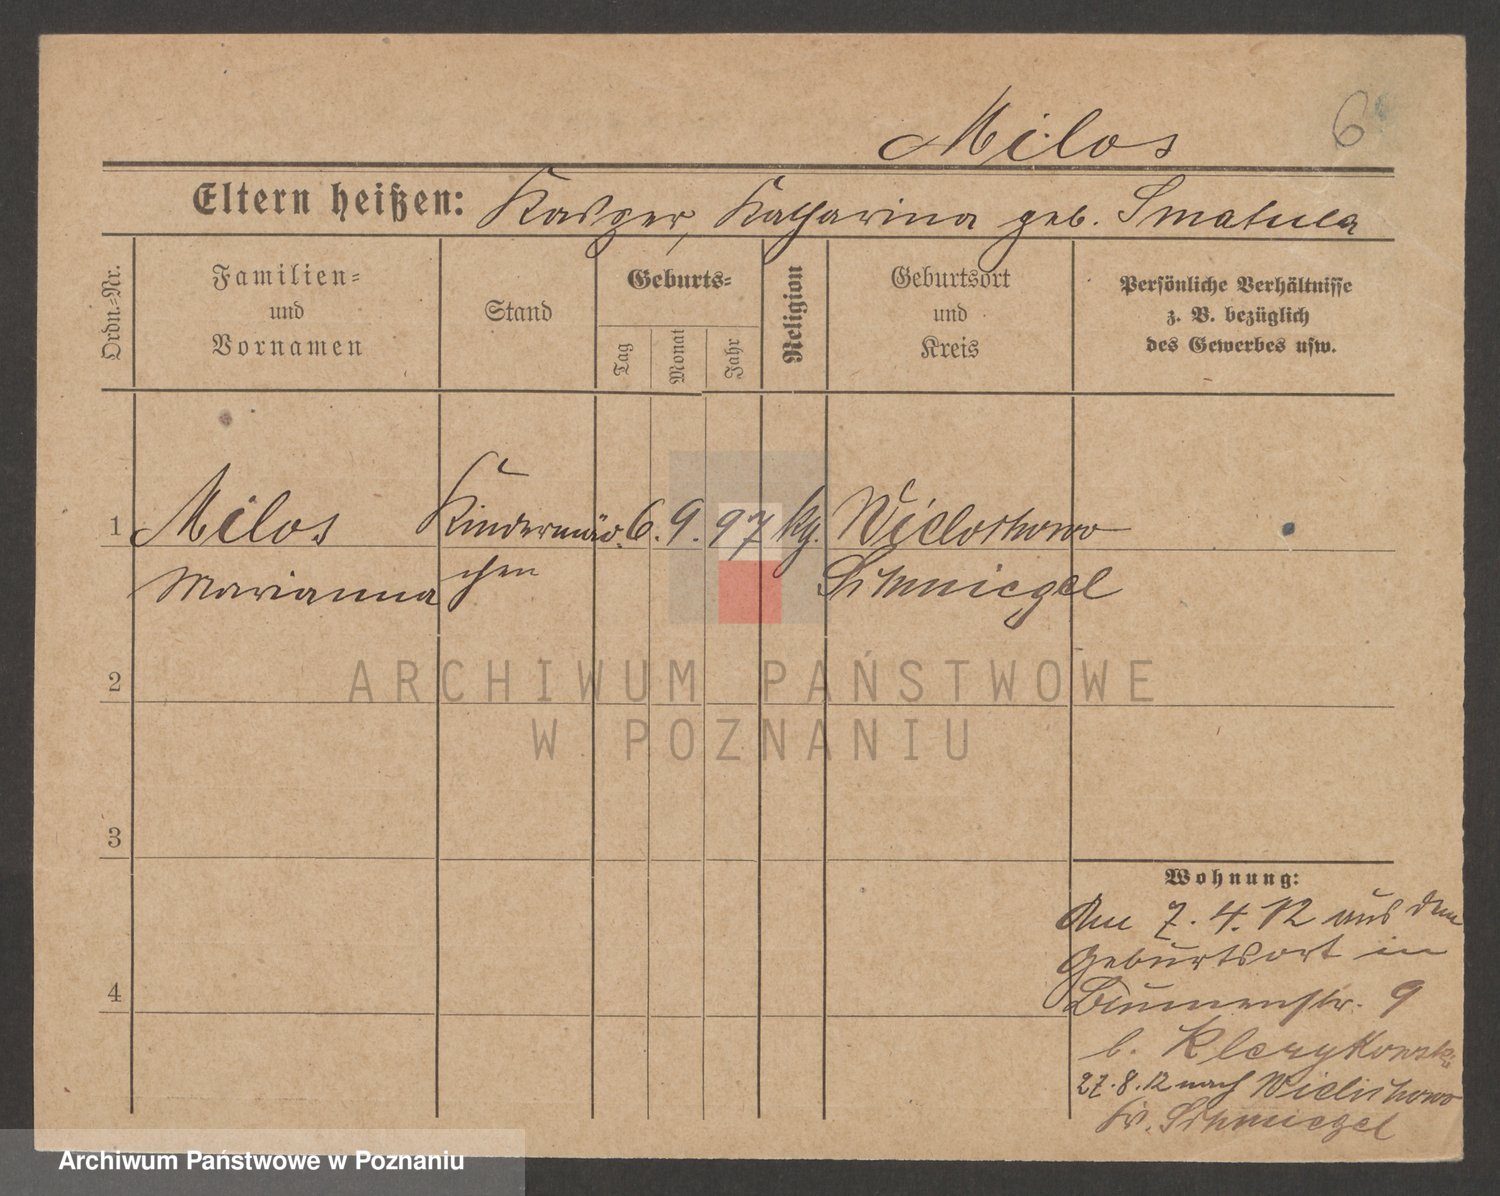 6
Milos
Eltern heißen: Kasper, Katharina geb. Smatula
Ordn.-Nr.
Familien-
und
Vornamen
Stand
Geburts-
Tag
Monat
Jahr
Religion
Geburtsort
und
Kreis
Persönliche Verhältnisse
z. B. bezüglich
des Gewerbes usw.
1 Milos Kindermäd. 6. 9. 97 kg. Wielichowo
Marianna chen Schmiegel
2
3
4
Wohnung:
Am 7. 4. 12 aus dem
Geburtsort in
Blumenstr. 9
b.
27. 8. 12 nach Wielichowo
Kr. Schmiegel
ARCHIWUM PAŃSTWOWE
W POZNANIU
Archiwum Państwowe w Poznaniu